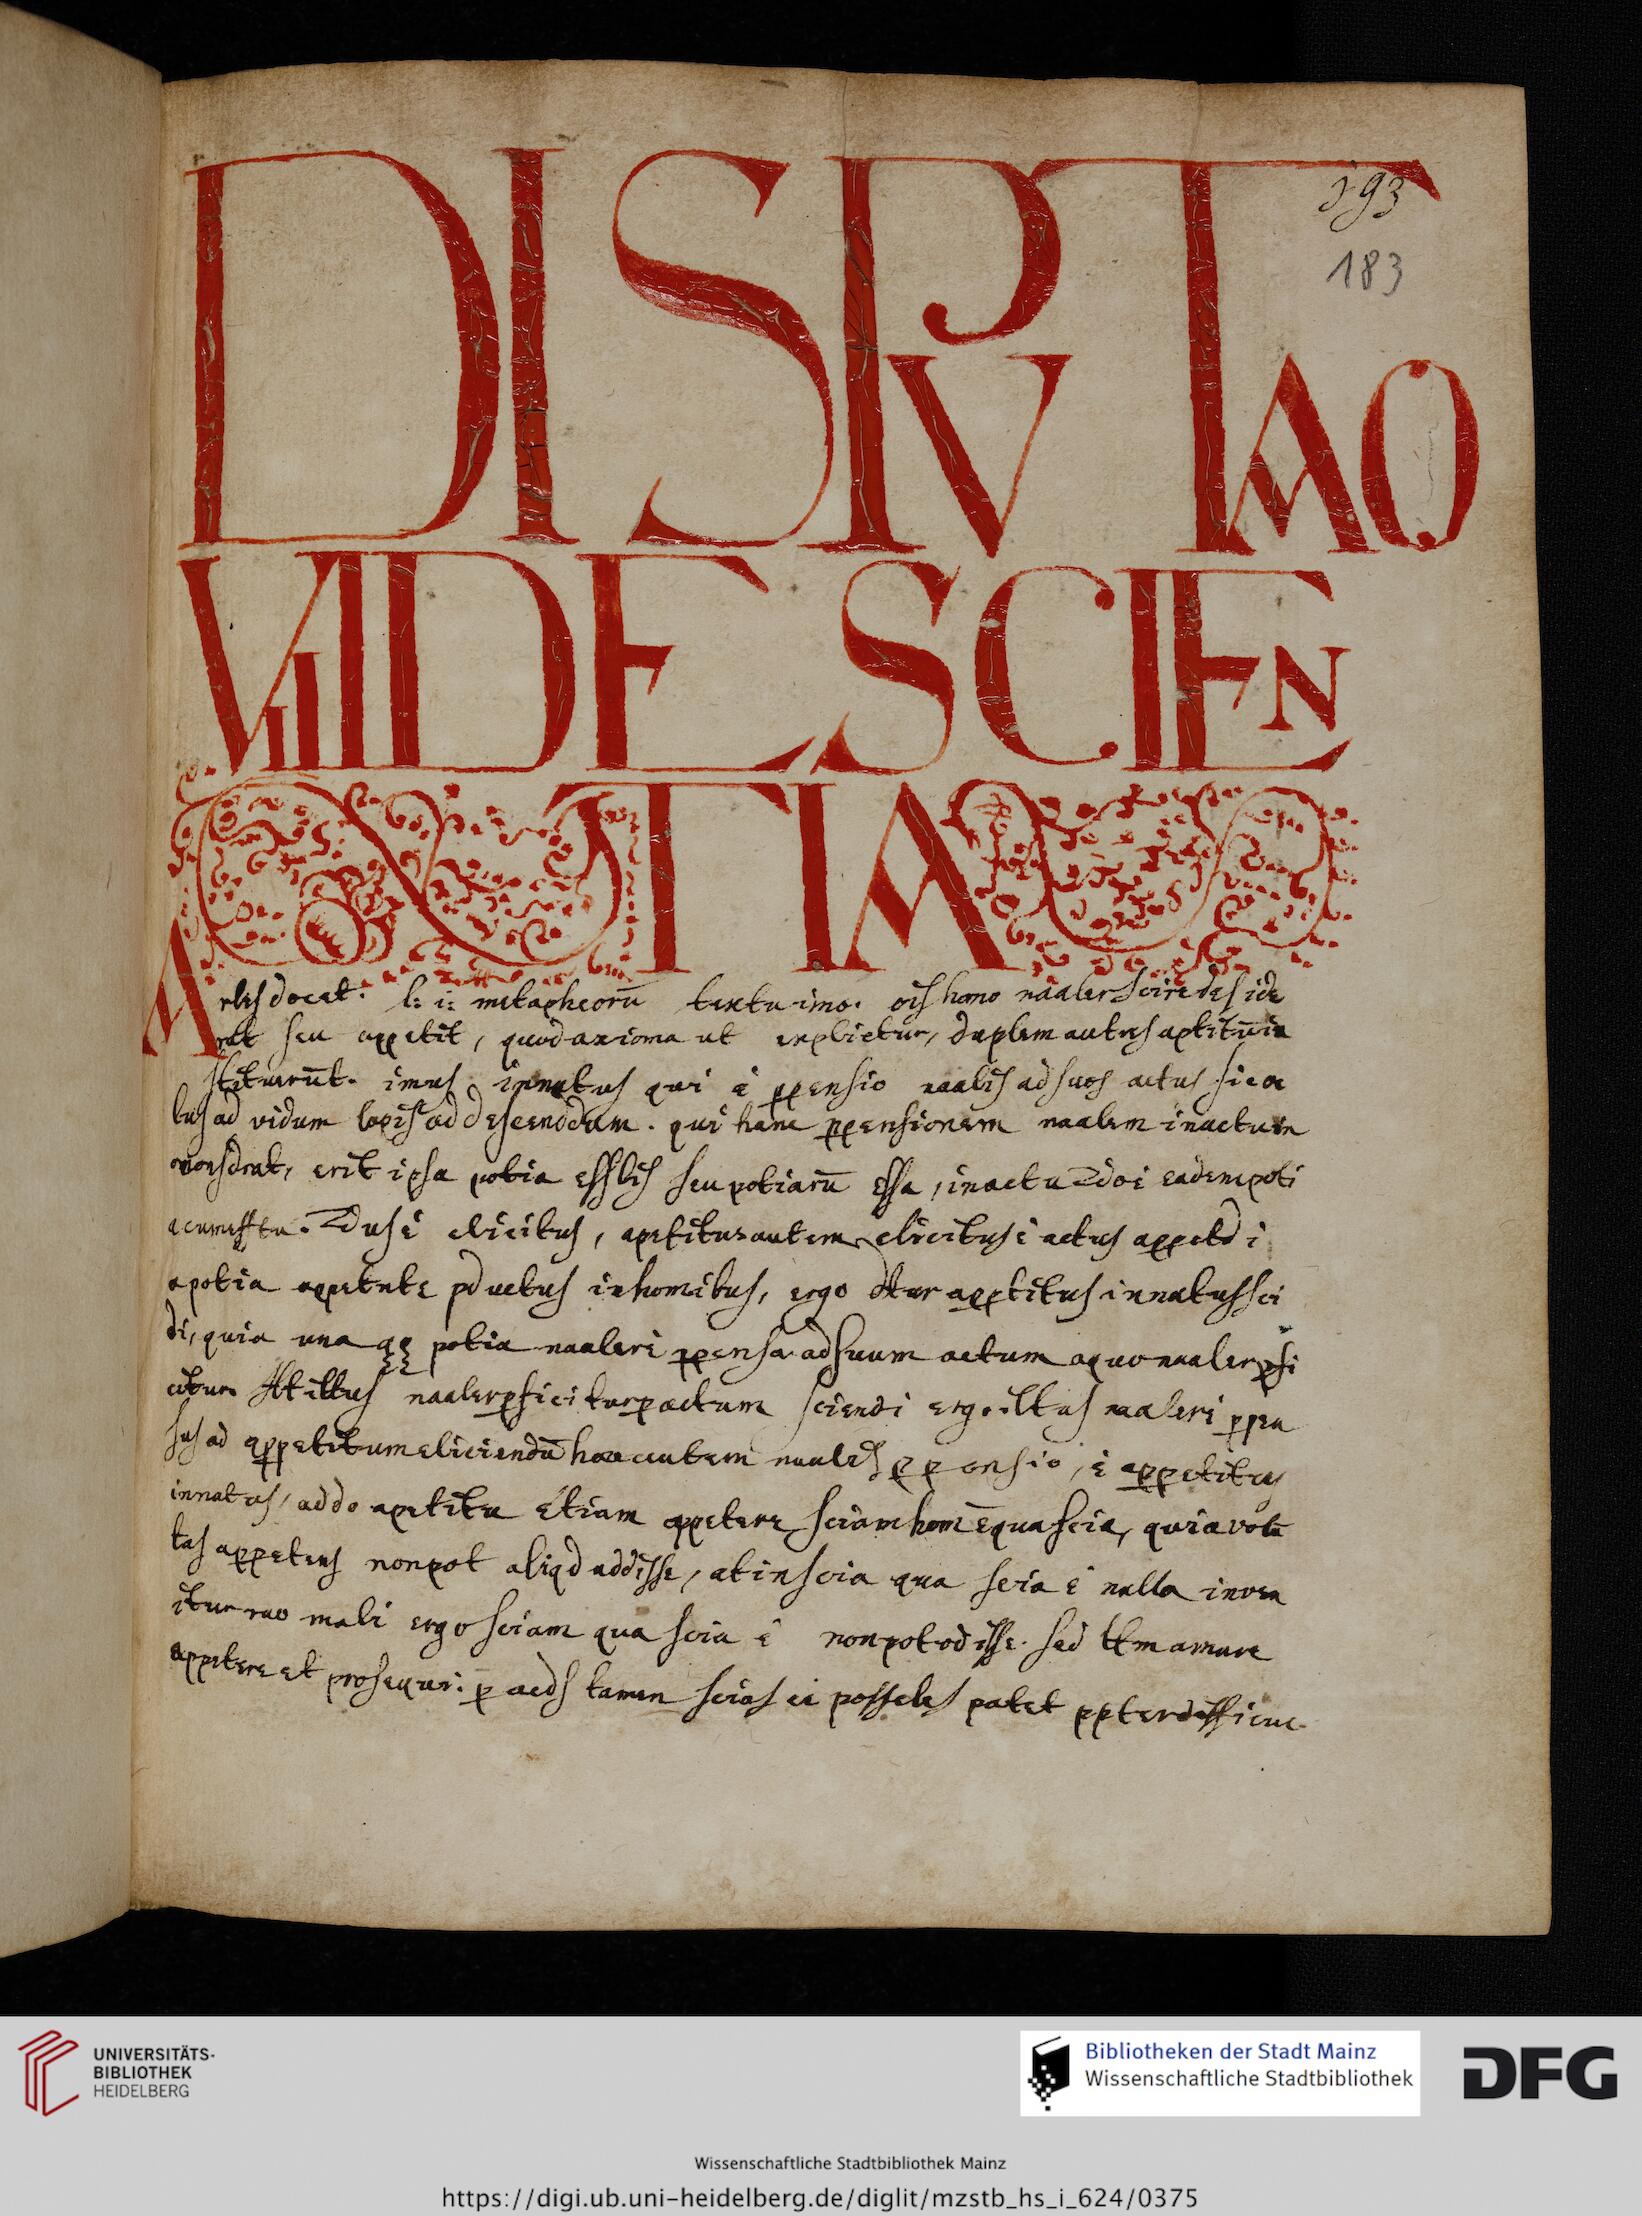 DISPVTAO
193
183
VIII DE SCIEN
TIA
Arles docet. l: i: metapheorū textu imo. ois homo naaler scire deside
rat seu appetit, quod axioma ut explicetur, duplem autres aptitū in
stituerūt. imus innatus qui ē ppensio naalis ad suos actus sic oc
lus ad vidum lapis ad descendcdum. qui hanc ppensionem naalem in actu in
consdrat, erit ipsa potia esslis seu potiarū essa, in actu 2doi eadem poti
a cum 2dus ē elicitus, apetitus autem elicitus ē actus appetdi
a potia appetnte pductus in homibus, ergo dtur apptitus innatus sci
di, quia una qq potia naaler ē ppensa ad suum actum a quo naaler pfi
citur naaler pficitur p actum sciendi ergo naaler ē ppen
sus ad appetitum eliciendū haec autem naalis ppensio, ē appetitus
innatus, addo apetitu etiam appetere sciam homē qua scia, quia volū
tas appetens non pot aliqd addisse, at in scia qua scia ē nulla inven
itur rao mali ergo sciam qua scia ē non pot odisse. sed ttm amare
appetere et prosequi. p aeds tamen scias ei possebes patet ppter difficuc-
UNIVERSITÄTS-
BIBLIOTHEK
HEIDELBERG
Bibliotheken der Stadt Mainz
Wissenschaftliche Stadtbibliothek
DFG
Wissenschaftliche Stadtbibliothek Mainz
https://digi.ub.uni-heidelberg.de/diglit/mzstb_hs_i_624/0375